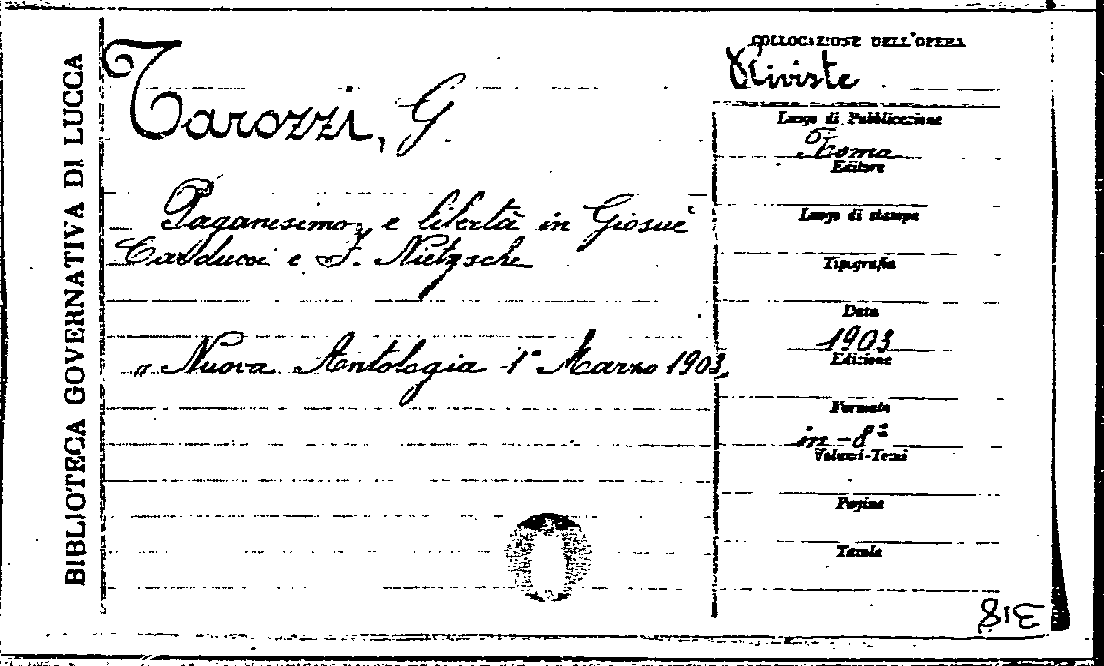 BIBLIOTECA GOVERNATIVA DI LUCCA
Tarozzi, G
Paganesimo, e libertà in Giosuè
Carducci e F. Nietzsche
"Nuova Antologia 1° Marzo 1903,
COLLOCAZIONE DELL'OPERA
Riviste
Luogo di Pubblicazione
Roma
Editore
Luogo di stampa
Tipografia
Data
1903
Edizione
Formato
in-8°
Volumi-Tomi
Pagine
Tavole